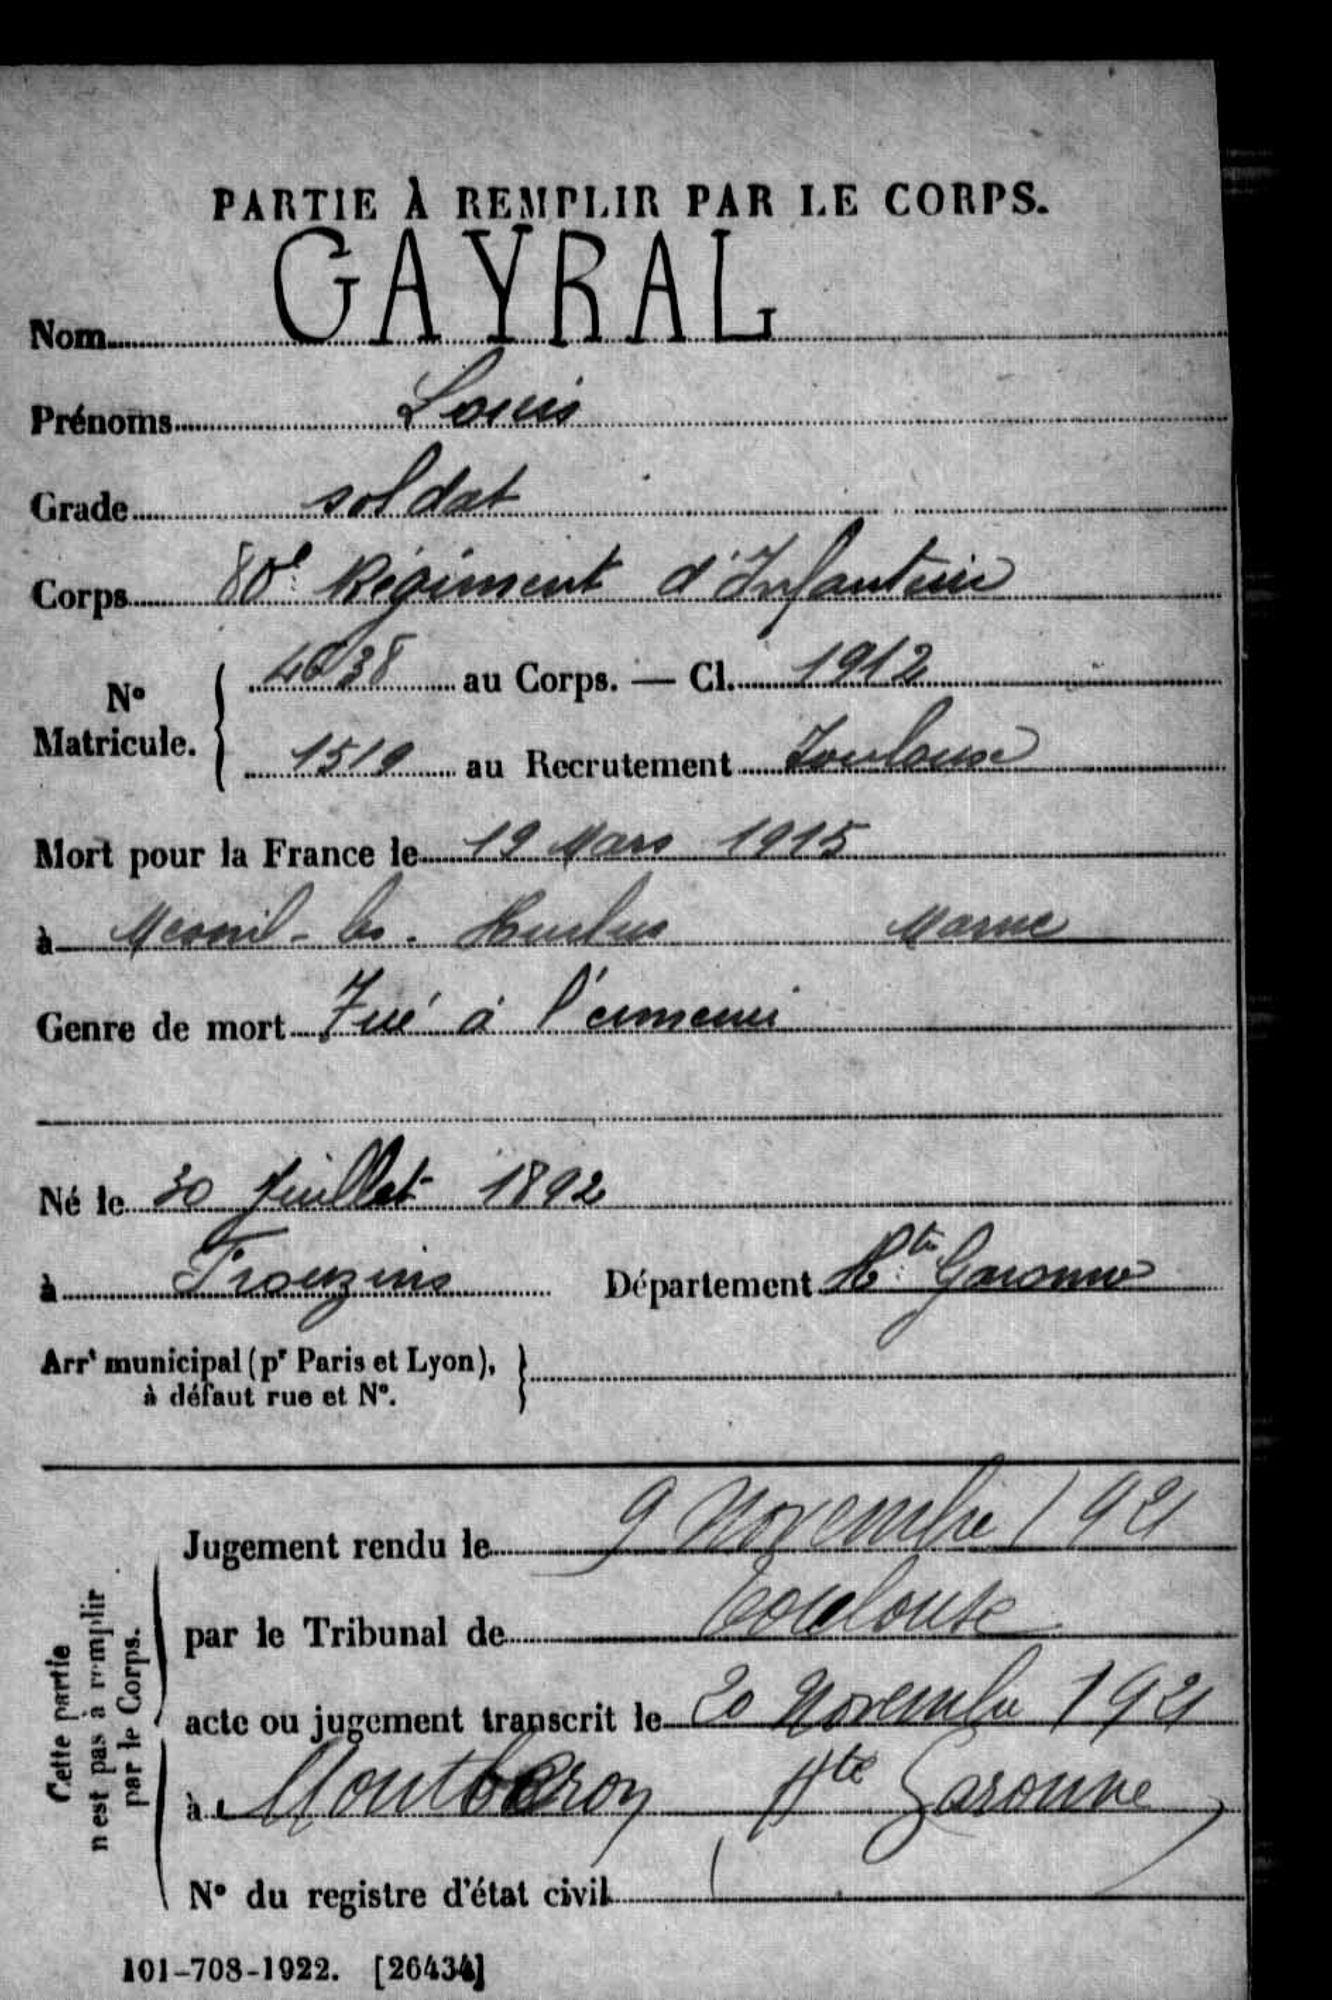 PARTIE À REMPLIR PAR LE CORPS.
Nom GAYRAL
Prénoms Louis
Grade soldat
Corps 80e Régiment d'Infanterie
N° Matricule. 4638 au Corps. — Cl. 1912
1519 au Recrutement Toulouse
Mort pour la France le 19 Mars 1915
à Mesnil-les-Hurlus Marne
Genre de mort Tué à l'ennemi
Né le 30 Juillet 1892
à Frouzins Département Hte Garonne
Arrt municipal (pr Paris et Lyon), à défaut rue et N°.
Cette partie n'est pas à remplir par le Corps.
Jugement rendu le 9 Novembre 1921
par le Tribunal de Toulouse
acte ou jugement transcrit le 20 Novembre 1921
à Montberon Hte Garonne
N° du registre d'état civil
101-708-1922. [26434]